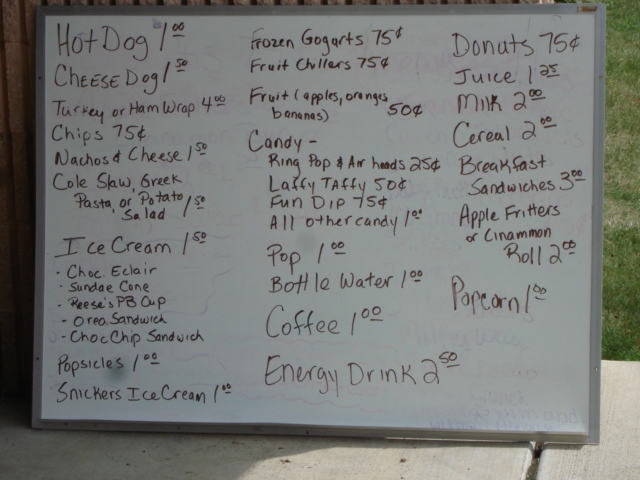 Hot Dog 1 00
Cheese Dog 1 50
Turkey or Ham Wrap 4 00
Chips 75¢
Nachos & Cheese 1 50
Cole Slaw, Greek
Pasta, or Potato
Salad 1 50
Ice Cream 1 50
- Choc. Eclair
- Sundae Cone
- Reese's PB Cup
- Oreo Sandwich
- Choc Chip Sandwich
Popsicles 1 00
Snickers Ice Cream 1 00
Frozen Gogarts 75¢
Fruit Chillers 75¢
Fruit (apples, oranges
bananas) 50¢
Candy -
Ring Pop & Air heads 25¢
Laffy Taffy 50¢
Fun Dip 75¢
All other candy 1 00
Pop 1 00
Bottle Water 1 00
Coffee 1 00
Energy Drink 2 50
Donuts 75¢
Juice 1 25
Milk 2 00
Cereal 2 00
Breakfast
Sandwiches 3 00
Apple Fritters
or Cinammon
Roll 2 00
Popcorn 1 00